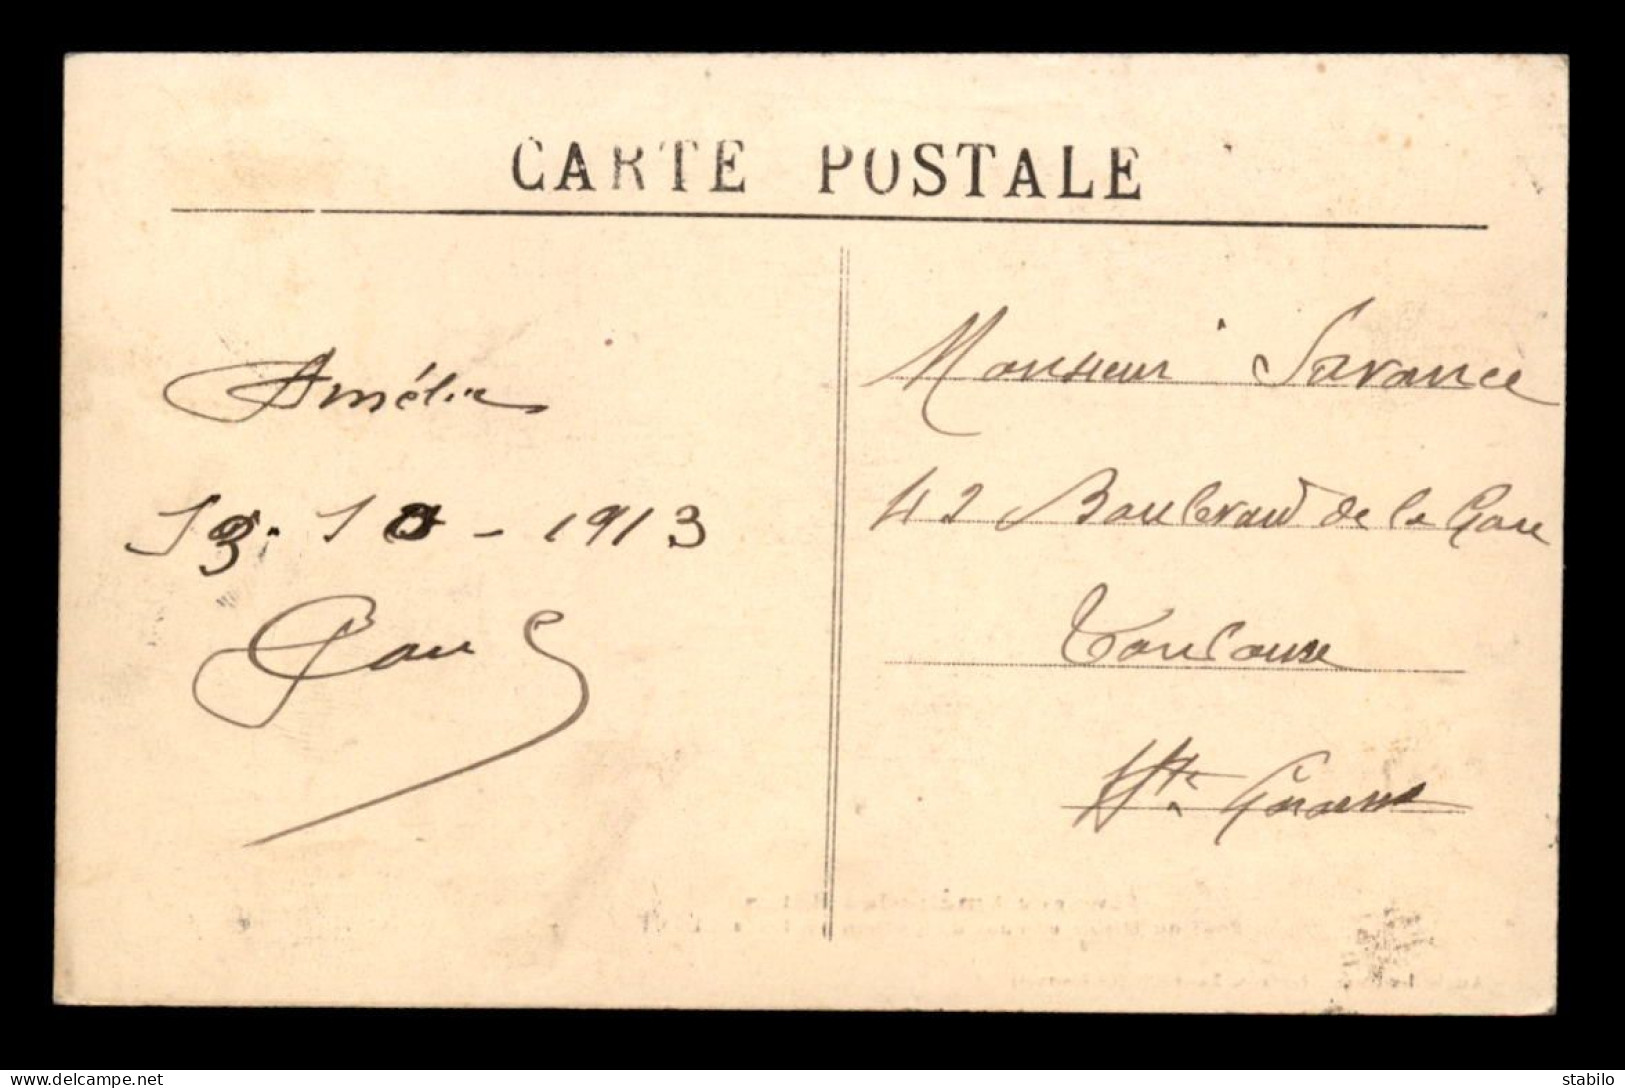 CARTE POSTALE
Amélie
19. 10 - 1913
Paul
Monsieur Savance
42 Boulevard de la Gare
Toulouse
Hte Garonne
www.delcampe.net
stabilo